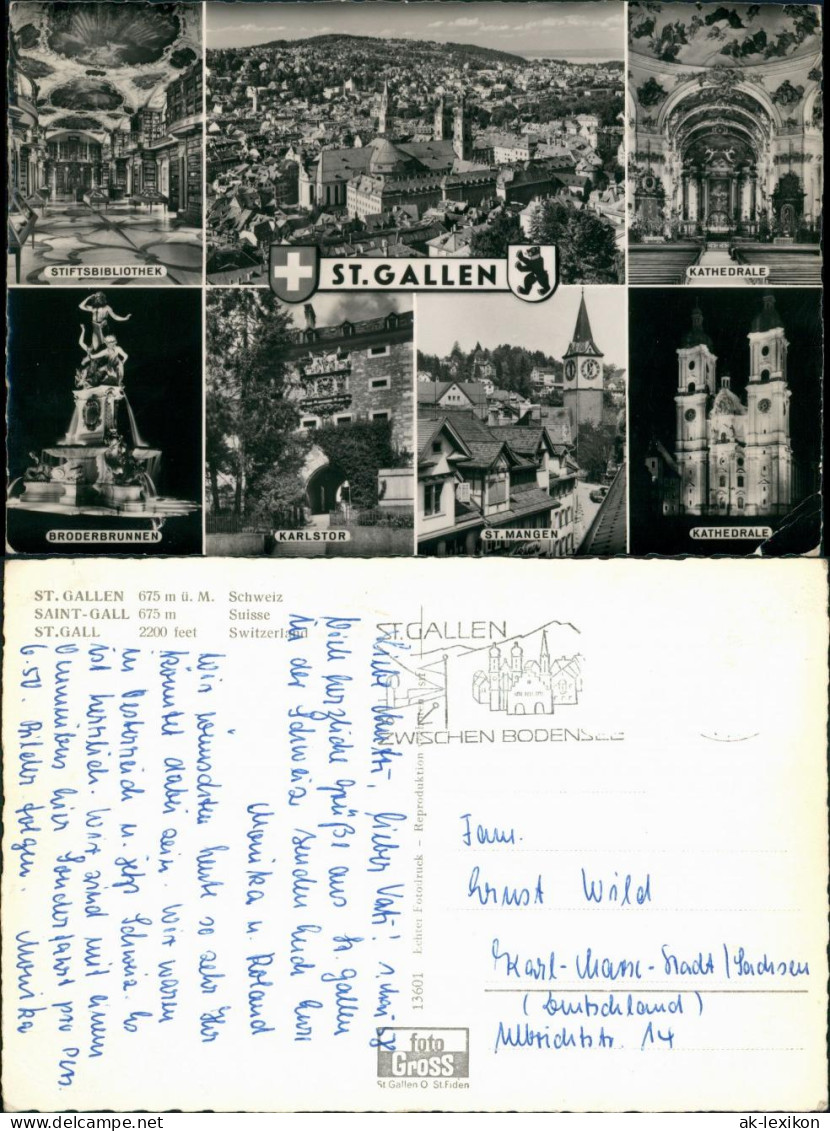 STIFTSBIBLIOTHEK
KATHEDRALE
ST. GALLEN
BRODERBRUNNEN
KARLSTOR
ST. MANGEN
KATHEDRALE
ST. GALLEN 675 m ü. M. Schweiz
SAINT-GALL 675 m Suisse
ST. GALL 2200 feet Switzerland
ST. GALLEN
ZWISCHEN BODENSEE
Liebe Mutti, lieber Vati!
Viele herzliche Grüße aus St. Gallen
in der Schweiz senden Euch Eure
Monika u. Roland
Wir wünschten heute so sehr Ihr
könntet dabei sein. Wir waren
in Oesterreich u. jetzt Schweiz. Es
ist herrlich. Wir sind mit einem
Omnibus hier Sonderfahrt pro Pers.
6.50. Bilder folgen. Monika
13601 Echter Fotodruck - Reproduktion
Fam.
Ernst Wild
Karl-Marx-Stadt/Sachsen
(Deutschland)
Ulbrichtstr. 14
foto
Gross
St. Gallen O St. Fiden
ak-lexikon